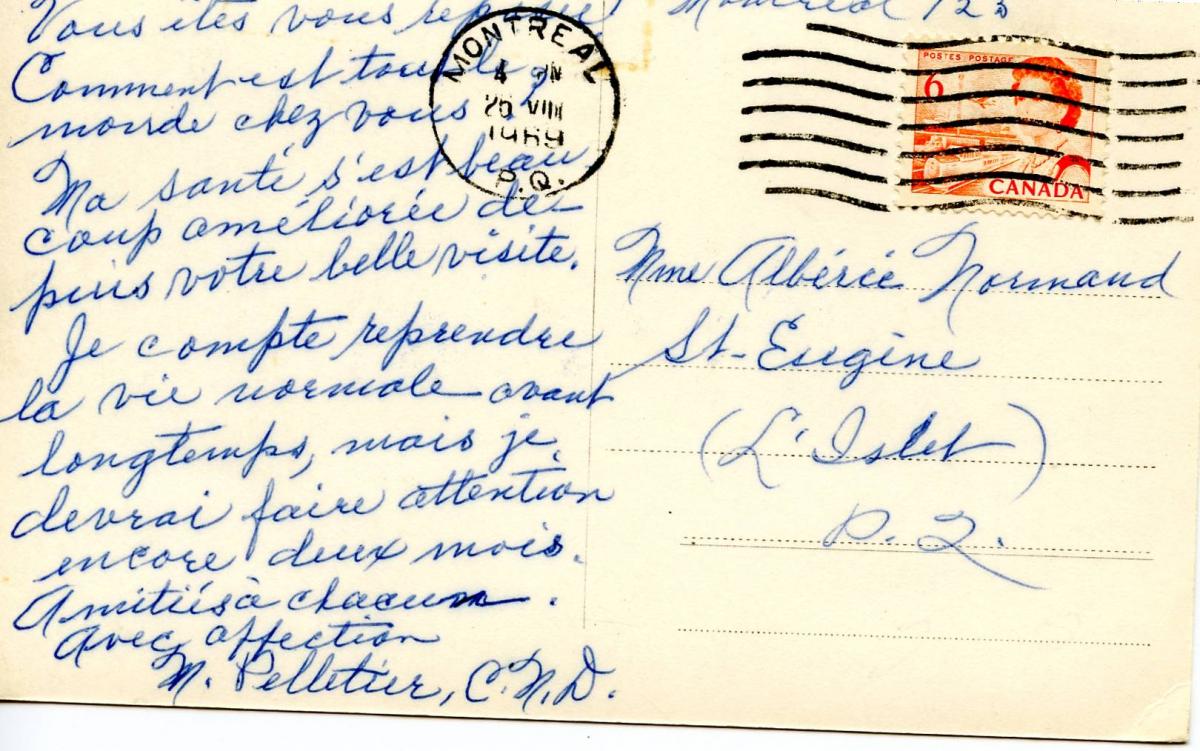 Vous êtes vous reposée?
Comment est tout le
monde chez vous?
Ma santé s'est beau
coup améliorée de-
puis votre belle visite.
Je compte reprendre
la vie normale avant
longtemps, mais je
devrai faire attention
encore deux mois.
Amitiés à chacun.
Avec affection
M. Pelletier, C.N.D.
Montréal 123
MONTREAL
4 PM
26 VIII
1969
P.Q.
POSTES POSTAGE
6
CANADA
Mme Albérie Normand
St-Eugène
(L'Islet)
P.Q.